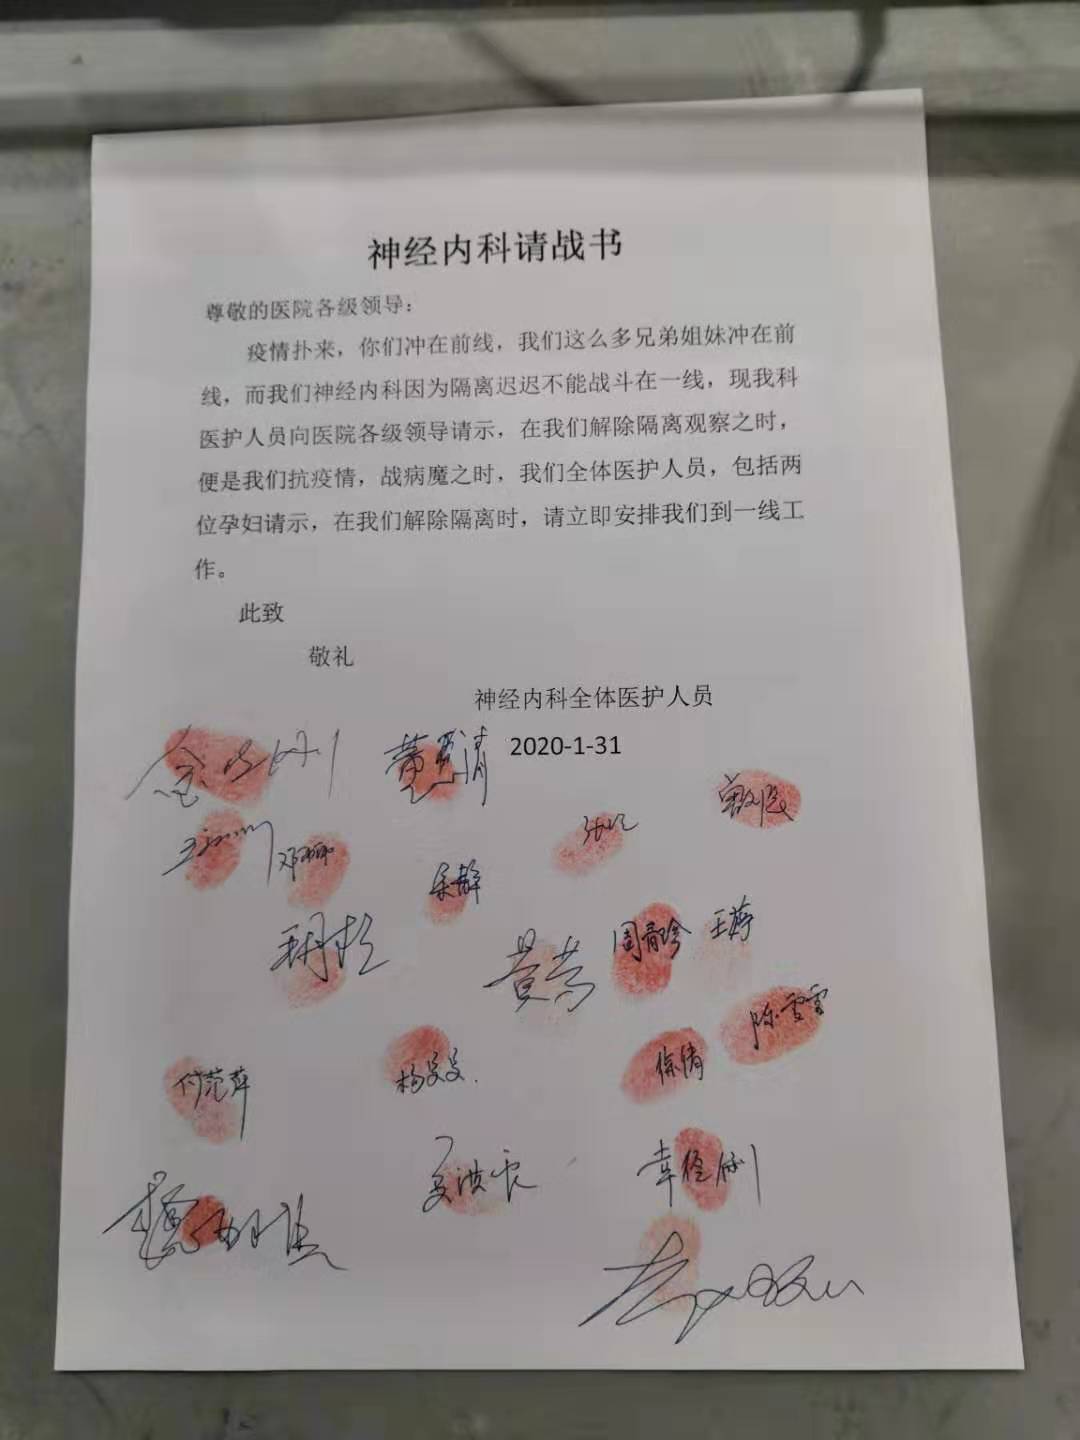 神经内科请战书
尊敬的医院各级领导：
疫情扑来，你们冲在前线，我们这么多兄弟姐妹冲在前
线，而我们神经内科因为隔离迟迟不能战斗在一线，现我科
医护人员向医院各级领导请示，在我们解除隔离观察之时，
便是我们抗疫情，战病魔之时，我们全体医护人员，包括两
位孕妇请示，在我们解除隔离时，请立即安排我们到一线工
作。
此致
敬礼
神经内科全体医护人员
2020-1-31
余静
周青珍
陈雪雪
徐倩
付范萍